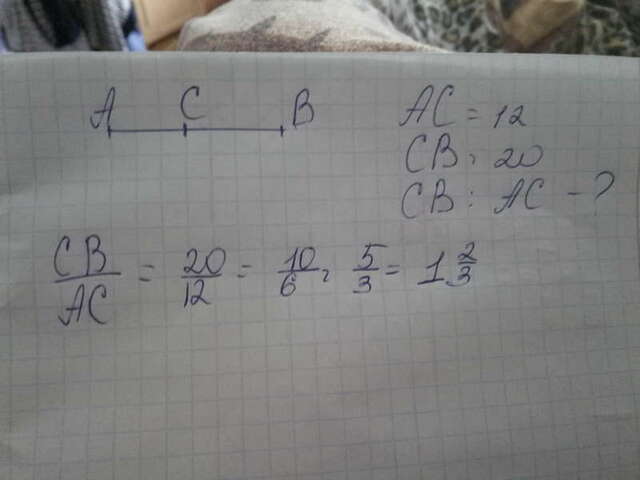 A C B
AC = 12
CB = 20
CB : AC - ?
CB/AC = 20/12 = 10/6 = 5/3 = 1 2/3